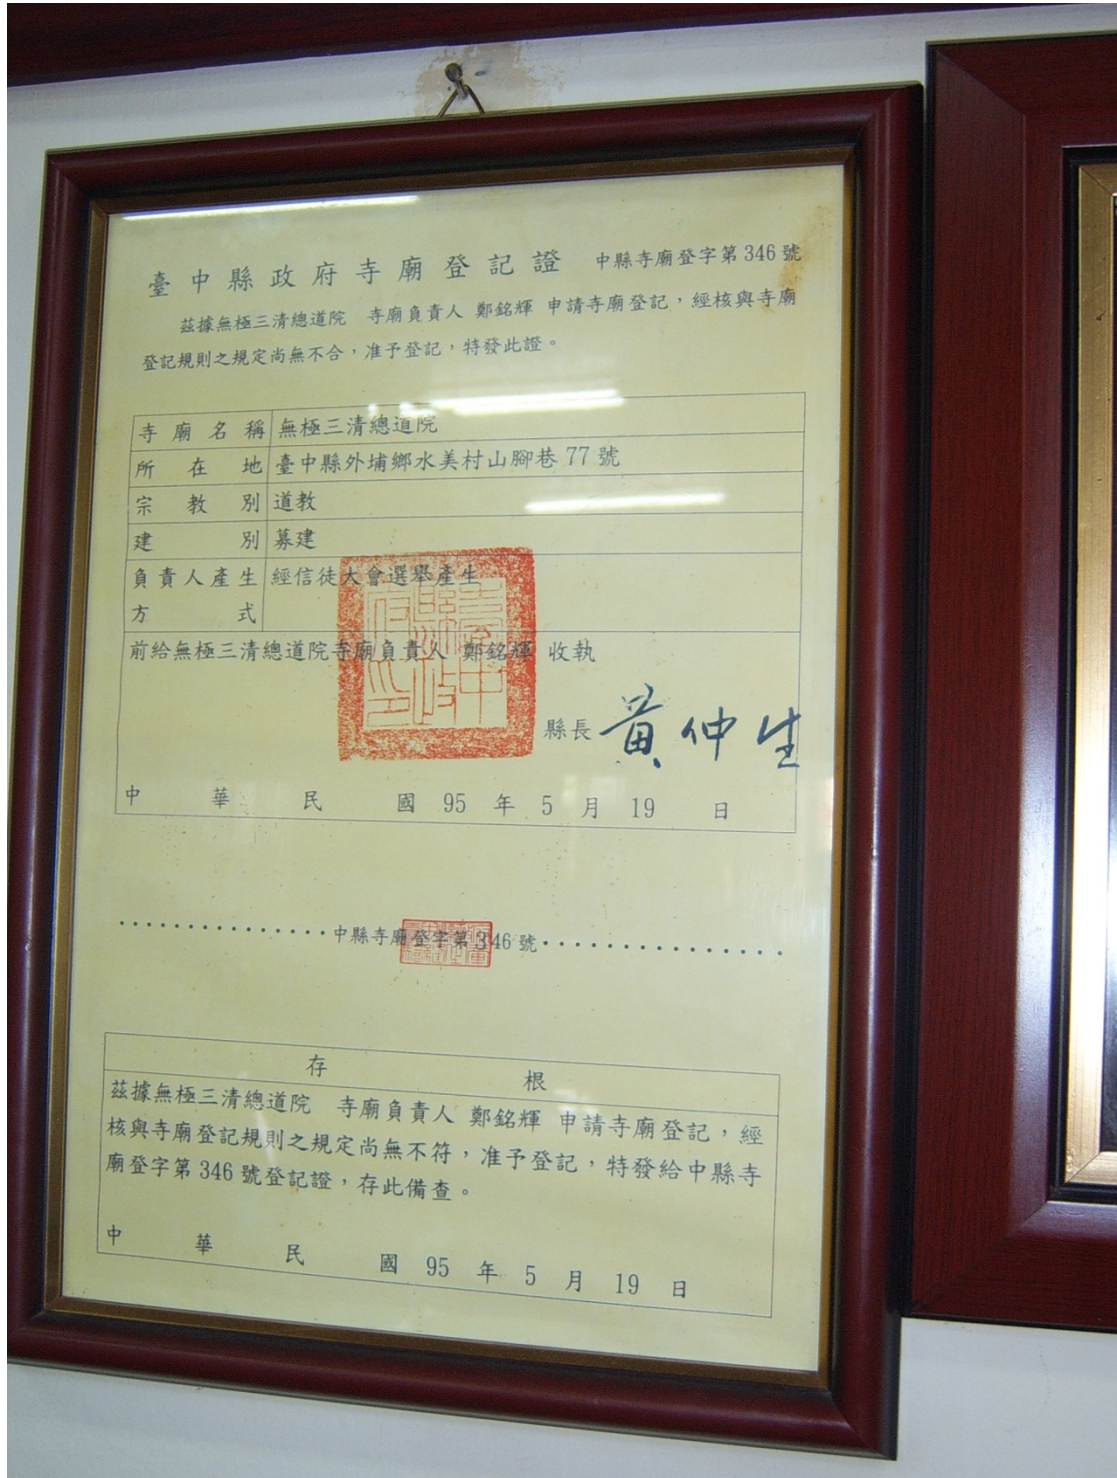 臺中縣政府寺廟登記證 中縣寺廟登字第346號
茲據無極三清總道院 寺廟負責人 鄭銘輝 申請寺廟登記，經核與寺廟
登記規則之規定尚無不合，准予登記，特發此證。
寺廟名稱 無極三清總道院
所在地 臺中縣外埔鄉水美村山腳巷77號
宗教別 道教
建別 募建
負責人產生 經信徒大會選舉產生
方式
前給無極三清總道院寺廟負責人 鄭銘輝 收執
縣長 黃仲生
中華民國95年5月19日
中縣寺廟登字第346號
存根
茲據無極三清總道院 寺廟負責人 鄭銘輝 申請寺廟登記，經
核與寺廟登記規則之規定尚無不符，准予登記，特發給中縣寺
廟登字第346號登記證，存此備查。
中華民國95年5月19日